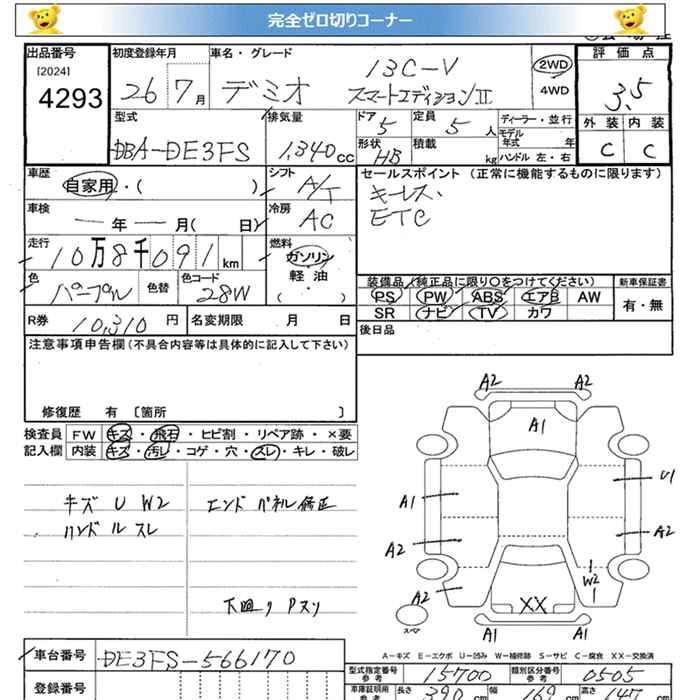 完全ゼロ切りコーナー
出品番号
[2024]
4293
初度登録年月
26 7月
車名・グレード
デミオ
13C-V
スマートエディションⅡ
2WD
4WD
評価点
3.5
外装 内装
C C
型式
DBA-DE3FS
排気量
1,340cc
ドア
5
定員
5人
形状
HB
積載
kg
ディーラー・並行
モデル年式 年
ハンドル 左・右
車歴
自家用・( )
シフト
A/T
車検
ー年ー月( 日)
冷房
AC
走行
10万8千091km
燃料
ガソリン
軽油
( ・ )
色
パープル
色替
色コード
28W
セールスポイント(正常に機能するものに限ります)
キーレス、
ETC
装備品(純正品に限り〇をつけてください)
PS PW ABS エアB AW
SR ナビ TV カワ
新車保証書
有・無
後日品
R券
10,310円
名変期限 月 日
注意事項申告欄(不具合内容等は具体的に記入して下さい)
修復歴 有 [箇所 ]
検査員 FW キズ・飛石・ヒビ割・リペア跡・×要
記入欄 内装 キズ・汚レ・コゲ・穴・スレ・キレ・破レ
キズ U W2
ハンドルスレ
エンドパネル修正
下廻り Pスリ
A2 A2
A1
A1
U1
A2
A2
W2
A2
XX
A1 A1
スペア
A-キズ E-エクボ U-凹み W-補修跡 S-サビ C-腐食 XX-交換済
車台番号
DE3FS-566170
登録番号
型式指定番号
参考
15700
類別区分番号
参考
0505
車庫証明用
参考
長さ
390cm
幅
169cm
高さ
147cm